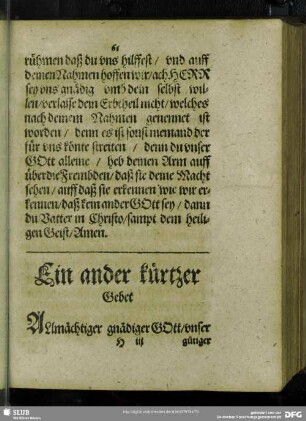 61
rühmen daß du vns hilffest / vnd auff
deinen Nahmen hoffen wir / ach HERR
sey vns gnädig vmb dein selbst wil-
len / verlasse dein Erbtheil nicht / welches
nach deinem Nahmen genennet ist
worden / denn es ist sonst niemand der
für vns könte streiten / denn du vnser
GOtt alleine / heb deinen Arm auff
über die Frembden / daß sie deine Macht
sehen / auff daß sie erkennen wie wir er-
kennen / daß kein ander GOtt sey / dann
du Vatter in Christo / sampt dem heili-
gen Geist / Amen.
Ein ander kürtzer
Gebet
ALlmächtiger gnädiger GOtt / vnser
H iij
gütiger
SLUB